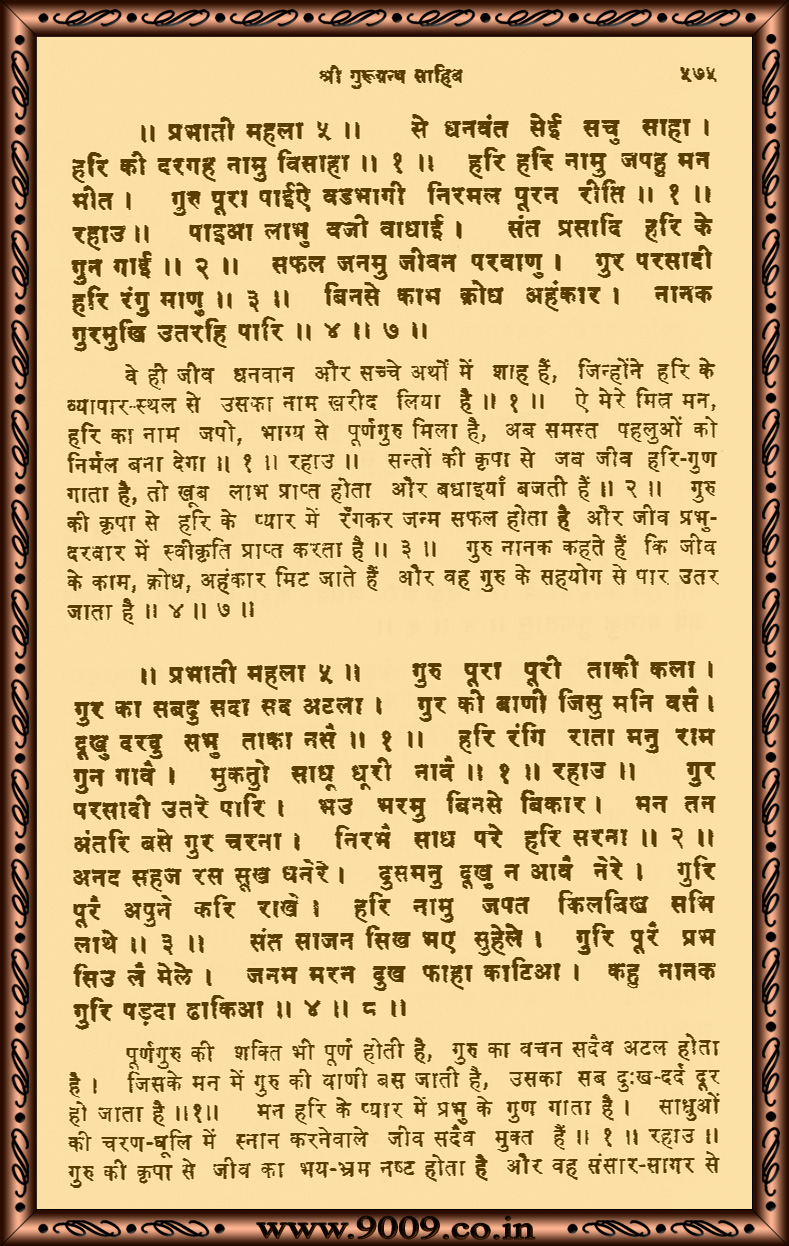 श्री गुरूग्रन्थ साहिब ५७५
।। प्रभाती महला ५ ।। से धनवंत सेई सचु साहा ।
हरि की दरगह नामु विसाहा ।। १ ।। हरि हरि नामु जपहु मन
मीत । गुरु पूरा पाईऐ वडभागी निरमल पूरन रीति ।। १ ।।
रहाउ ।। पाइआ लाभु वजी वाधाई । संत प्रसादि हरि के
गुन गाई ।। २ ।। सफल जनमु जीवन परवाणु । गुर परसादी
हरि रंगु माणु ।। ३ ।। बिनसे काम क्रोध अहंकार । नानक
गुरमुखि उतरहि पारि ।। ४ ।। ७ ।।
वे ही जीव धनवान और सच्चे अर्थों में शाह हैं, जिन्होंने हरि के
व्यापार-स्थल से उसका नाम खरीद लिया है ।। १ ।। ऐ मेरे मित्र मन,
हरि का नाम जपो, भाग्य से पूर्णगुरु मिला है, अब समस्त पहलुओं को
निर्मल बना देगा ।। १ ।। रहाउ ।। सन्तों की कृपा से जब जीव हरि-गुण
गाता है, तो खूब लाभ प्राप्त होता और बधाइयाँ बजती हैं ।। २ ।। गुरु
की कृपा से हरि के प्यार में रँगकर जन्म सफल होता है और जीव प्रभु-
दरबार में स्वीकृति प्राप्त करता है ।। ३ ।। गुरु नानक कहते हैं कि जीव
के काम, क्रोध, अहंकार मिट जाते हैं और वह गुरु के सहयोग से पार उतर
जाता है ।। ४ ।। ७ ।।
।। प्रभाती महला ५ ।। गुरु पूरा पूरी ताकी कला ।
गुर का सबदु सदा सद अटला । गुर की बाणी जिसु मनि वसै ।
दूखु दरदु सभु ताका नसै ।। १ ।। हरि रंगि राता मनु राम
गुन गावै । मुकतुो साधू धूरी नावै ।। १ ।। रहाउ ।। गुर
परसादी उतरे पारि । भउ भरमु बिनसे बिकार । मन तन
अंतरि बसे गुर चरना । निरभै साध परे हरि सरना ।। २ ।।
अनद सहज रस सूख घनेरे । दुसमनु दूखु न आवै नेरे । गुरि
पूरै अपुने करि राखे । हरि नामु जपत किलबिख सभि
लाथे ।। ३ ।। संत साजन सिख भए सुहेले । गुरि पूरै प्रभ
सिउ लै मेले । जनम मरन दुख फाहा काटिआ । कहु नानक
गुरि पड़दा ढाकिआ ।। ४ ।। ८ ।।
पूर्णगुरु की शक्ति भी पूर्ण होती है, गुरु का वचन सदैव अटल होता
है । जिसके मन में गुरु की वाणी बस जाती है, उसका सब दुःख-दर्द दूर
हो जाता है ।।१।। मन हरि के प्यार में प्रभु के गुण गाता है । साधुओं
की चरण-धूलि में स्नान करनेवाले जीव सदैव मुक्त हैं ।। १ ।। रहाउ ।।
गुरु की कृपा से जीव का भय-भ्रम नष्ट होता है और वह संसार-सागर से
www.9009.co.in